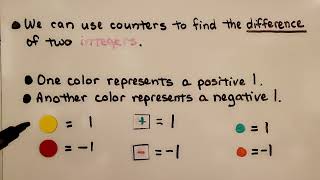 • We can use counters to find the difference
of two integers.
• One color represents a positive 1.
• Another color represents a negative 1.
= 1 + = 1 = 1
= -1 - = -1 = -1